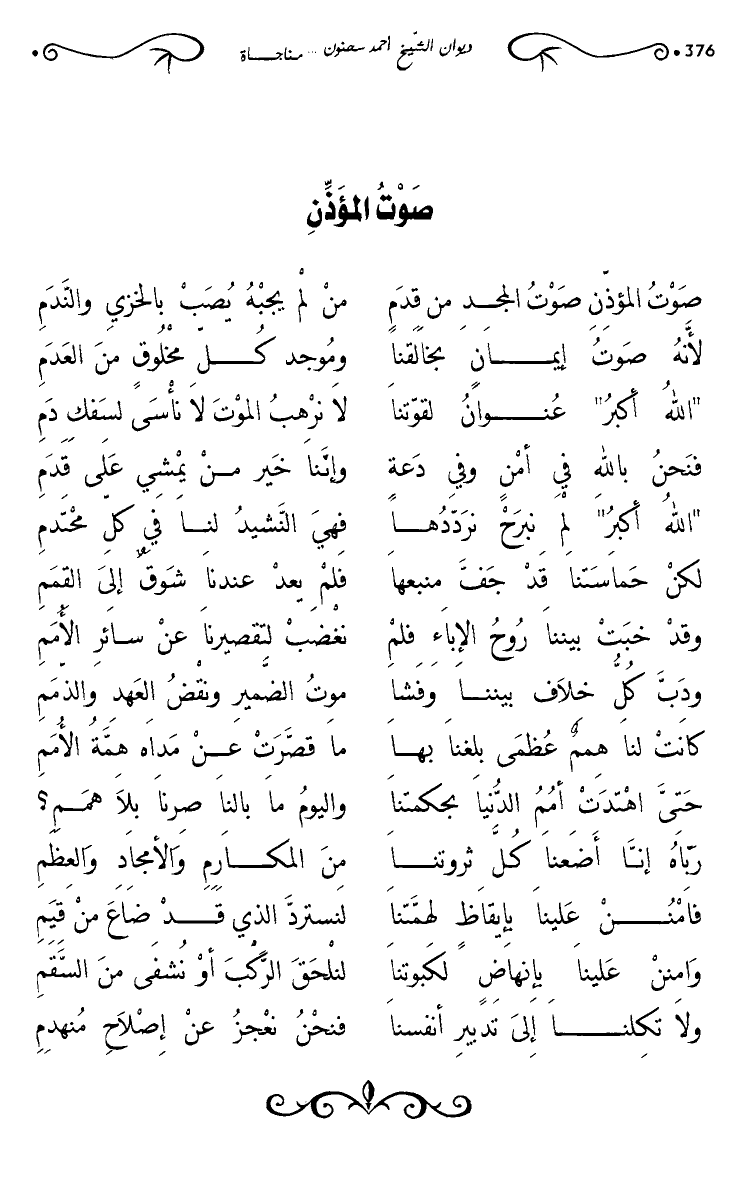 376 ديوان الشّيخ أحمد سحنون ... مناجاة
صَوْتُ المؤَذِّنِ
صَوْتُ المؤذّنِ صَوْتُ المجد من قدَمٍ منْ لْم يجبْهُ يُصَبْ بالخزيِ والنَّدَمِ
لأنَّهُ صَوتُ إيمانٍ بخالقناَ ومُوجد كُلّ مخْلُوقٍ منَ العَدَمِ
"اللهُ أكبرُ" عُنوانُ لقوّتناَ لا نرْهبُ الموْتَ لاَ نأْسَى لسَفكِ دَمِ
فنَحنُ باللهِ فيِ أمْنٍ وفيِ دَعَةٍ وإنَّناَ خَير منْ يمْشي عَلَى قَدَمِ
"اللهُ أكبرُ" لمْ نبرَحْ نرَدّدُهاَ فهيَ النَّشيدُ لناَ فيِ كلّ محْتَدمِ
لكنْ حَماسَتَناَ قدْ جَفَّ منبعهاَ فلمْ يعدْ عندناَ شَوقٌ إلىَ القمَمِ
وقدْ خبَتْ بيننا رُوحُ الإباَءِ فلمْ نغْضبْ لتَقصيرناَ عنْ سائرِ الأُمَمِ
ودَبَّ كُلُّ خلاَف بينناَ وفشاَ موتُ الضّميرِ ونقْضُ العَهدِ والذمَمِ
كانتْ لناَ هممٌ عُظمَى بلغناَ بهاَ ما قصَّرَتْ عنْ مَداَه همَّةُ الأُمَمِ
حَتىَّ اهْتدَتْ أمُمُ الدُّنياَ بحكمتناَ واليومُ ماَ بالناَ صرناَ بلاَ هممَمٍ؟
ربّاهُ إنَّا أضَعناَ كُلَّ ثروتناَ منَ المكَارمِ وَالأمجاَدِ وَالعظَمِ
فامْنُنْ عَليناَ بإيقاَظٍ لهمَّتناَ لنستردَّ الَّذيِ قدْ ضاَعَ منْ قيَمِ
وَامننْ عَليناَ بإنهاَضٍ لكَبوتناَ لنلْحَقَ الرَّكْبَ أوْ نُشفى منَ السَّقَمِ
ولاَ تكلناَ إلىَ تدَبيرِ أنفسناَ فنحْنُ نعْجزُ عنْ إصْلاَحِ مُنهدمِ